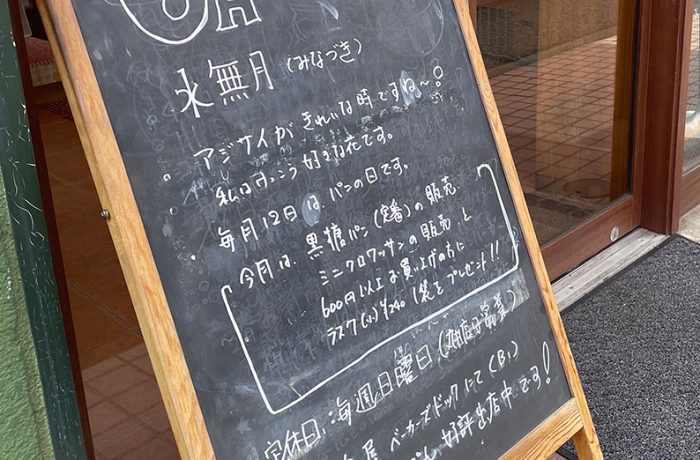 6月
水無月(みなづき)
アジサイがきれいな時ですね〜
私はけっこう好きな花です。
毎月12日は、パンの日です。
今月は、黒糖パン(定番)の販売
ミニクロワッサンの販売と
600円以上お買上げの方に
ラスク(小)¥240 1袋をプレゼント!!
定休日:毎週日曜日(
屋 ベーカーズドックにて(B1)
好評出店中です!